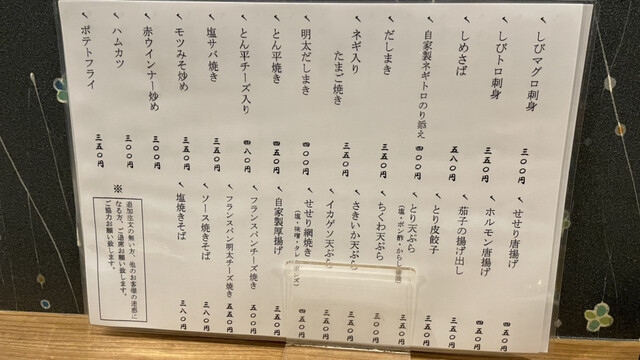 しびマグロ刺身 三〇〇円
しびトロ刺身 三五〇円
しめさば 五八〇円
自家製ネギトロのり添え 四〇〇円
だしまき 三五〇円
ネギ入り
たまご焼き 三五〇円
明太だしまき 四〇〇円
とん平焼き 三五〇円
とん平チーズ入り 四八〇円
塩サバ焼き 三五〇円
モツみそ炒め 三五〇円
赤ウインナー炒め 三〇〇円
ハムカツ 三〇〇円
ポテトフライ 三五〇円
せせり唐揚げ 四五〇円
ホルモン唐揚げ 四五〇円
茄子の揚げ出し 三五〇円
とり皮餃子 三五〇円
とり天ぷら
(塩・ポン酢・からし醤油) 三五〇円
ちくわ天ぷら 三〇〇円
さきいか天ぷら 三五〇円
イカゲソ天ぷら 三五〇円
せせり網焼き
(塩・味噌・タレ・ポンズ) 四五〇円
自家製厚揚げ 三五〇円
フランスパンチーズ焼き 五〇〇円
フランスパン明太チーズ焼き 五五〇円
ソース焼きそば 三八〇円
塩焼きそば 三八〇円
※
追加注文の無い方、他のお客様の迷惑に
なる方、ご退席お願い致します。
ご協力お願い致します。